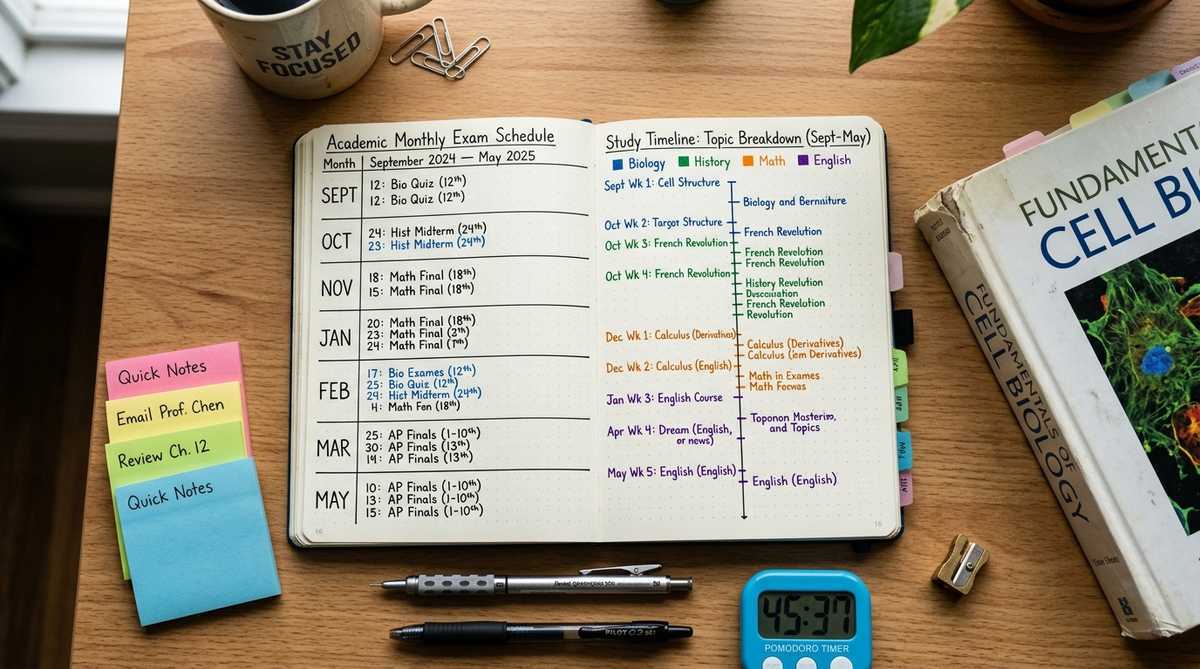 STAY
FOCUSED
Academic Monthly Exam Schedule
Month
September 2024 — May 2025
SEPT
12: Bio Quiz (12th)
12: Bio Quiz (12th)
OCT
24: Hist Midterm (24th)
23: Hist Midterm (24th)
NOV
18: Math Final (18th)
15: Math Final (18th)
JAN
20: Math Final (18th)
23: Math Final (2th)
24: Math Final
FEB
17: Bio Exames (12th)
25: Bio Quiz (12th)
29: Hict Midterm (24th)
4: Math Fon (18th)
MAR
25: AP Finals (1-10th)
30: AP Finals (13th)
14: AP Finals (13th)
MAY
10: AP Finals (1-10th)
13: AP Finals (1-10th)
15: AP Finals (1-10th)
16
Study Timeline: Topic Breakdown (Sept-May)
Biology History Math English
Sept Wk 1: Cell Structure
Biology and Bernniture
Oct Wk 2: Targot Structure
French Revolution
Oct Wk 3: French Revolution
French Revolution
French Revolution
Oct Wk 4: French Revolution
History Revolution
French Revolution
Revolution
Dec Wk 1: Calculus (Derivatives)
Calculus (Derivatives)
Calculus Derivatives)
Dec Wk 2: Calculus (English)
Math in Exames
Math
Jan Wk 3: English Course
Toponon
and Topics
Apr Wk 4: Dream (English,
or news)
May Wk 5: English (English)
English (English)
Quick Notes
Email Prof. Chen
Review Ch. 12
Quick Notes
FUNDAMENT
CELL BI
FUNDAMENTALS OF
CELL BIOLOGY
PILOT
45:37
POMODORO TIMER